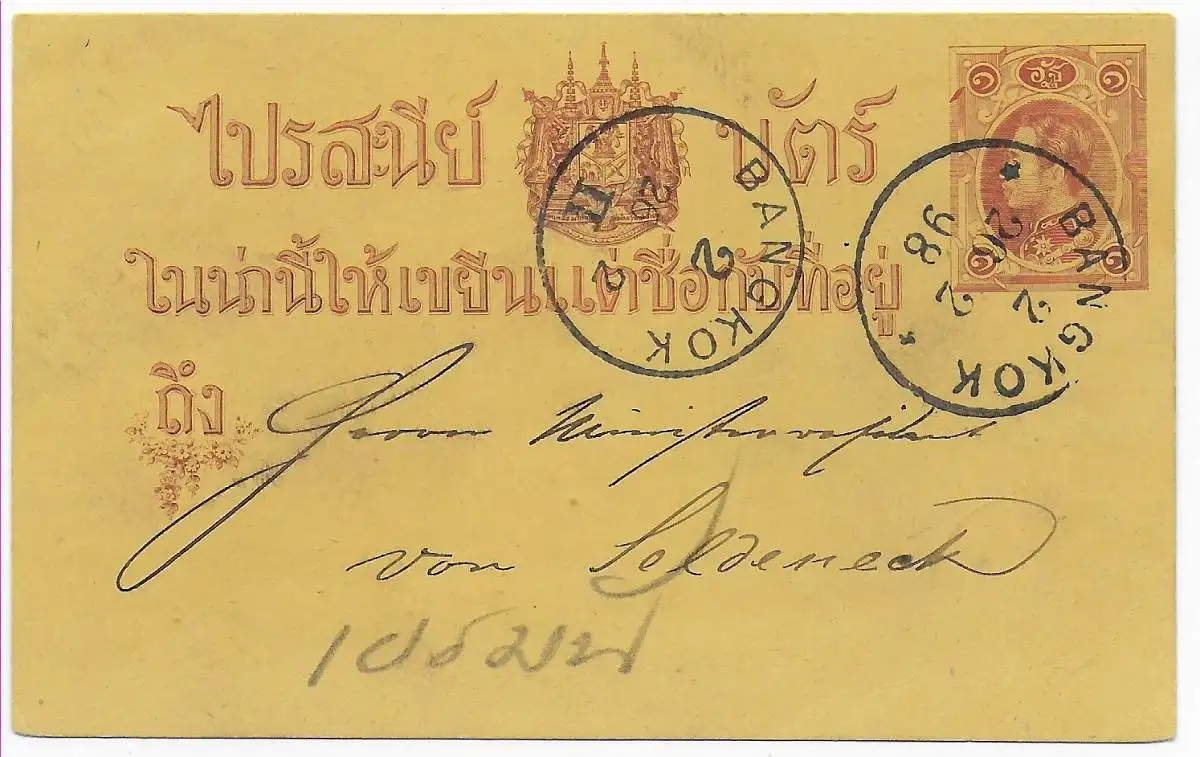 ไปรสนีย์ บัตร์
ในน่านี้ให้เขยีนแต่ชื่อกับที่อยู่
ถึง
๑ อัฐ ๑
๑ ๑
BANGKOK
2
26
2
II
BANGKOK
2
26
2
98
Herrn Ministerresident
von Seldeneck